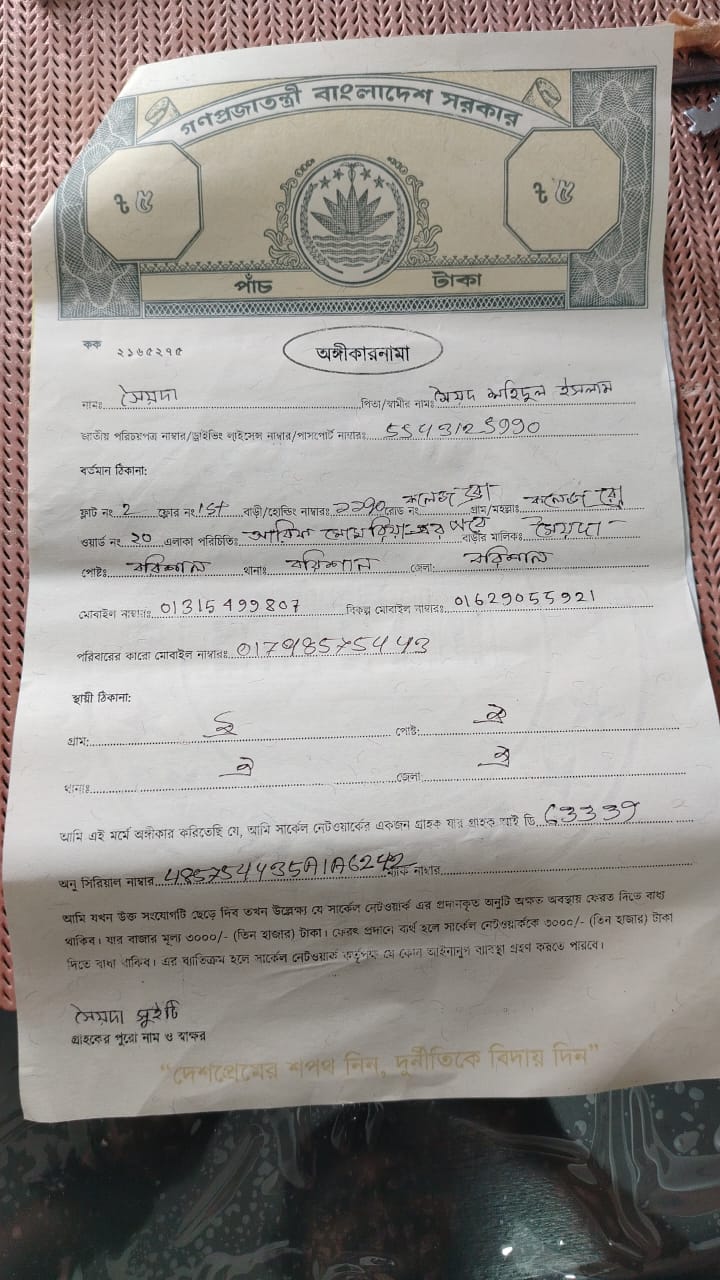 গণপ্রজাতন্ত্রী বাংলাদেশ সরকার
৳ ৫ ৳ ৫
পাঁচ টাকা
কক ২১৬৫২৭৫
অঙ্গীকারনামা
নামঃ সৈয়দা পিতা/স্বামীর নামঃ সৈয়দ শহিদুল ইসলাম
জাতীয় পরিচয়পত্র নাম্বার/ড্রাইভিং লাইসেন্স নাম্বার/পাসপোর্ট নাম্বারঃ
বর্তমান ঠিকানা:
ফ্লাট নং 2 ফ্লোর নং 1st বাড়ী/হোল্ডিং নাম্বারঃ রোড নং কলেজ রো গ্রাম/মহল্লাঃ কলেজ রো
ওয়ার্ড নং ২০ এলাকা পরিচিতিঃ বাড়ীর মালিকঃ সৈয়দা
পোষ্টঃ বরিশাল থানাঃ বরিশাল জেলা: বরিশাল
মোবাইল নাম্বারঃ 01315499807 বিকল্প মোবাইল নাম্বারঃ 01629055921
পরিবারের কারো মোবাইল নাম্বারঃ
স্থায়ী ঠিকানা:
গ্রাম: পোষ্ট: ঐ
থানাঃ ঐ জেলা: ঐ
আমি এই মর্মে অঙ্গীকার করিতেছি যে, আমি সার্কেল নেটওয়ার্কের একজন গ্রাহক যার গ্রাহক আই ডি
অনু সিরিয়াল নাম্বার 485754435A1A6242 নাম্বার
আমি যখন উক্ত সংযোগটি ছেড়ে দিব তখন উল্লেক্ষ্য যে সার্কেল নেটওয়ার্ক এর প্রদানকৃত অনুটি অক্ষত অবস্থায় ফেরত দিতে বাধ্য
থাকিব। যার বাজার মূল্য ৩০০০/- (তিন হাজার) টাকা। ফেরৎ প্রদানে ব্যর্থ হলে সার্কেল নেটওয়ার্ককে ৩০০০/- (তিন হাজার) টাকা
দিতে বাধ্য থাকিব। এর ব্যতিক্রম হলে সার্কেল নেটওয়ার্ক কর্তৃপক্ষ যে কোন আইনানুগ ব্যবস্থা গ্রহণ করতে পারবে।
সৈয়দা সুইটি
গ্রাহকের পুরো নাম ও স্বাক্ষর
“দেশপ্রেমের শপথ নিন, দুর্নীতিকে বিদায় দিন”